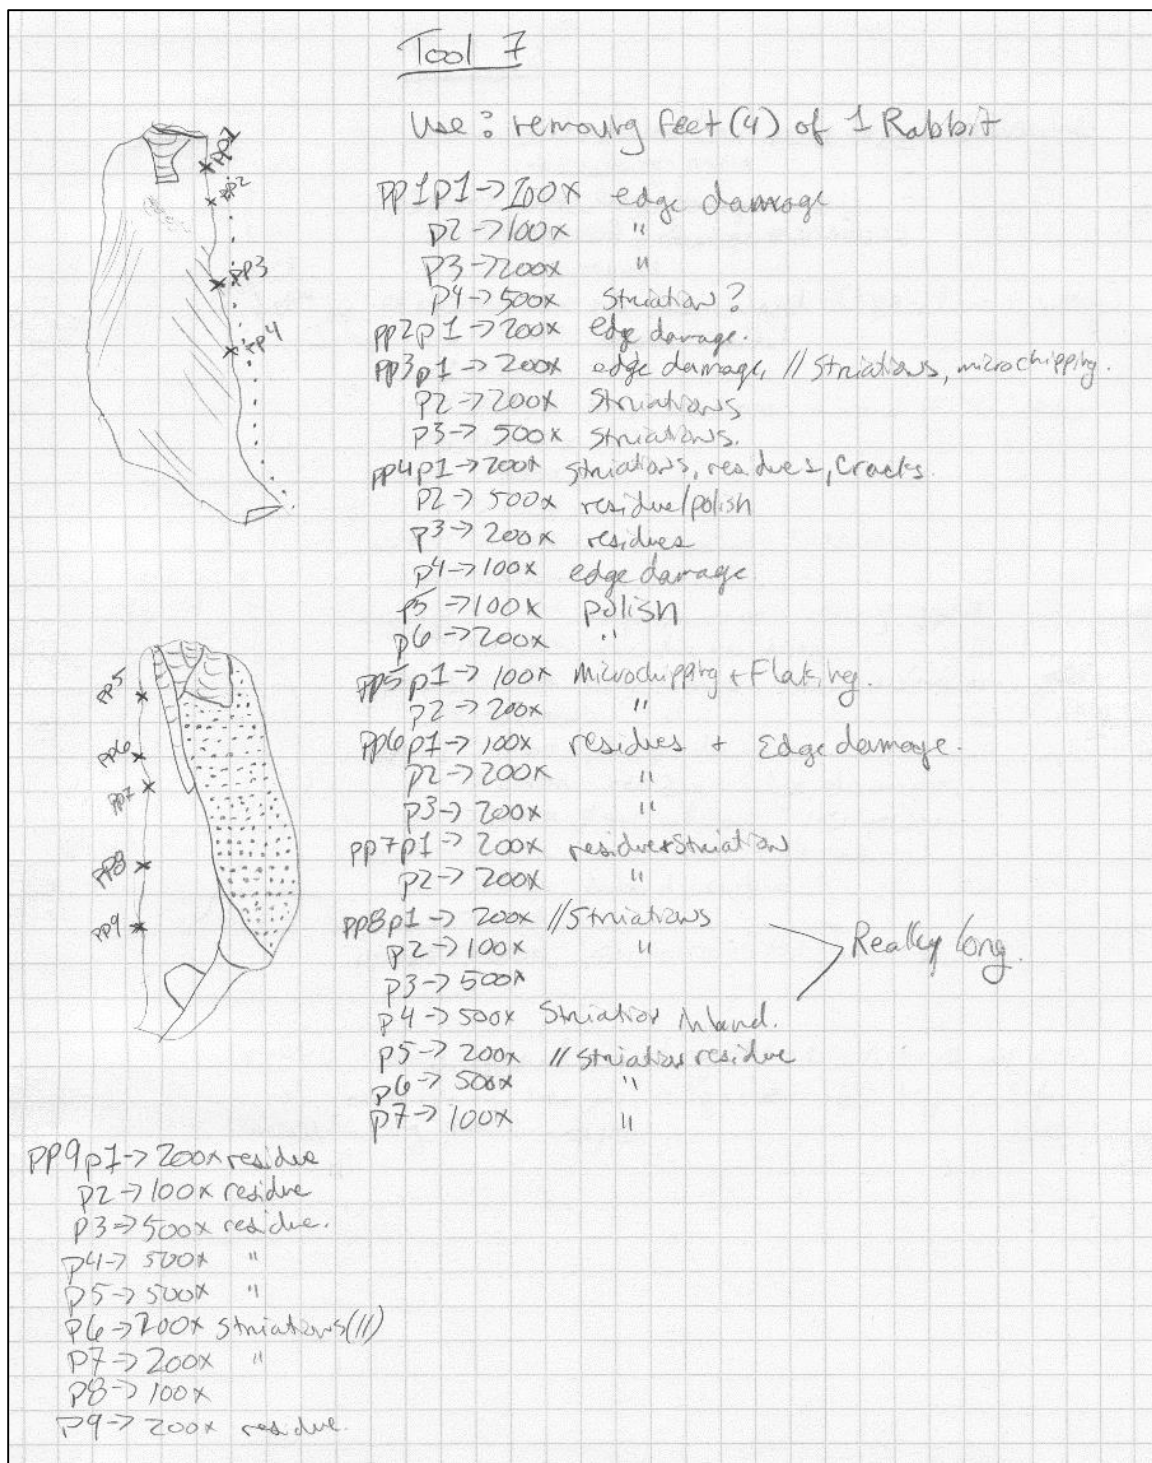 Tool 7
Use: removing feet (4) of 1 Rabbit
pp1
pp2
pp3
pp4
pp1p1 -> 100x edge damage
p2 -> 100x "
p3 -> 200x "
p4 -> 500x Striation?
pp2p1 -> 200x edge damage.
pp3p1 -> 200x edge damage, // Striations, microchipping.
p2 -> 200x Striations
p3 -> 500x Striations.
pp4p1 -> 200x Striations, residues, Cracks.
p2 -> 500x residue/polish
p3 -> 200x residues
p4 -> 100x edge damage
p5 -> 100x polish
p6 -> 200x "
pp5
pp6
pp7
pp8
pp9
pp5p1 -> 100x Microchipping + Flaking.
p2 -> 200x "
pp6p1 -> 100x residues + Edge damage.
p2 -> 200x "
p3 -> 200x "
pp7p1 -> 200x residue+Striation
p2 -> 200x "
pp8p1 -> 200x //Striations
p2 -> 100x "
p3 -> 500x
p4 -> 500x Striation inland.
Really long.
p5 -> 200x // Striation residue
p6 -> 500x "
p7 -> 100x "
pp9p1 -> 200x residue
p2 -> 100x residue
p3 -> 500x residue.
p4 -> 500x "
p5 -> 500x "
p6 -> 200x Striations(//)
p7 -> 200x "
p8 -> 100x
p9 -> 200x residue.